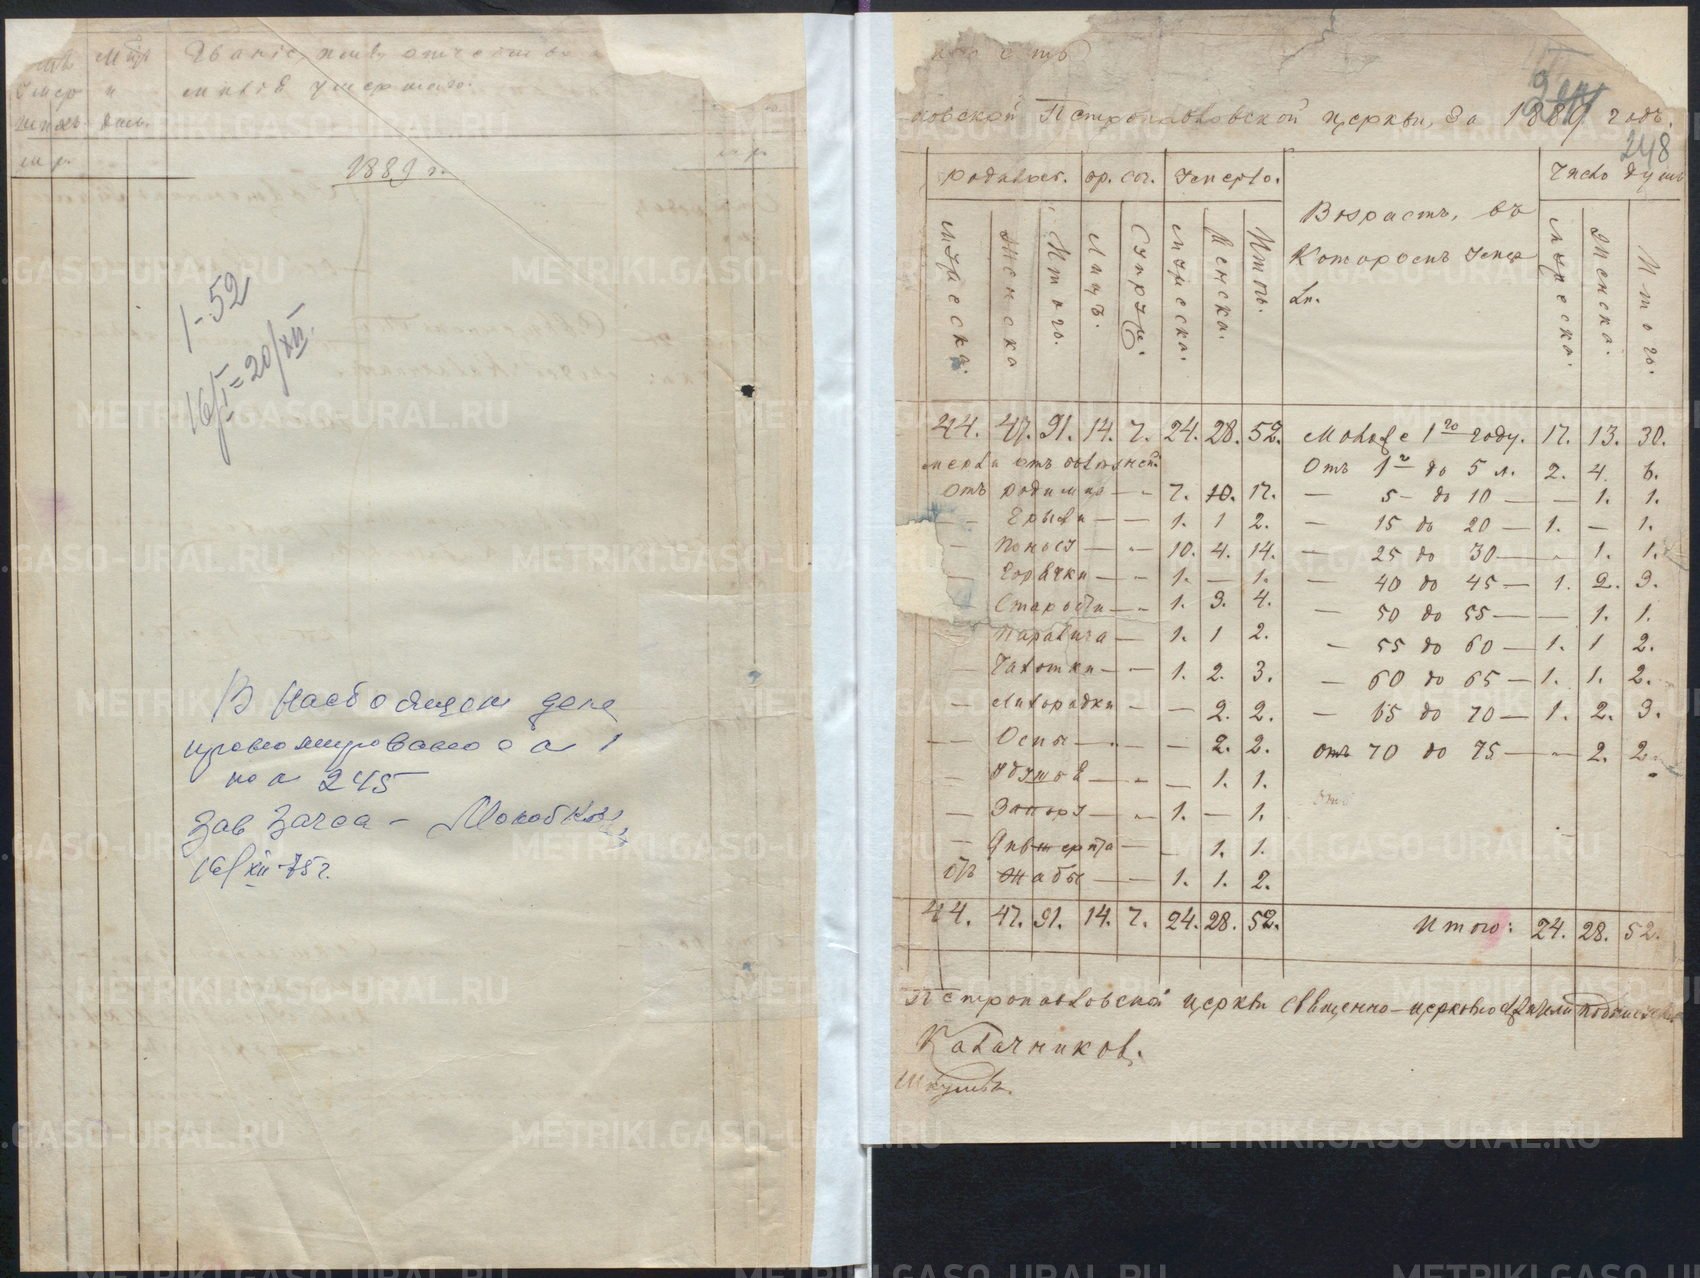 Званіе, имя, отчество
умершаго.
1889 г.
1-52
16/I = 20/XII.
В настоящем деле
пронумеровано с л 1
по л 245
Зав Загса -
16/XII-75 г.
ность
ковской Петропавловской церкви, за 1889 годъ.
248
родилось. бр. соч. Умерло. Число душъ
Возрастъ, въ
Которомъ Умер
ли.
Мужеска. Женска Итого. Лицъ. Супруж. Мужеска. Женска. Итого. Мужеска. Женска. Итого.
44. 47. 91. 14. 7. 24. 28. 52. Моложе 1го году. 17. 13. 30.
отъ болѣзней: Отъ 1г до 5 л. 2. 4. 6.
Отъ родимца — 7. 10. 17. — 5 - до 10 — — 1. 1.
— Грыжи — — 1. 1 2. — 15 до 20 — 1. — 1.
— Поносу — 10. 4. 14. — 25 до 30 — 1. 1.
— Горячки — 1. — 1. — 40 до 45 — 1. 2. 3.
— Старости — 1. 3. 4. — 50 до 55 — — 1. 1.
— Паралича — 1. 1 2. — 55 до 60 — 1. 1 2.
— Чахотки — 1. 2. 3. — 60 до 65 — 1. 1. 2.
— Лихорадки — — 2. 2. — 65 до 70 — 1. 2. 3.
— Оспы — — 2. 2. отъ 70 до 75 — 2. 2.
— — — 1. 1.
— Запору — 1. — 1.
— — — 1. 1.
отъ Жабы — — 1. 1. 2.
44. 47. 91. 14. 7. 24. 28. 52. Итого: 24. 28. 52.
Петропавловской церкви священно-церковнослужители
Калачников.
METRIKI.GASO-URAL.RU